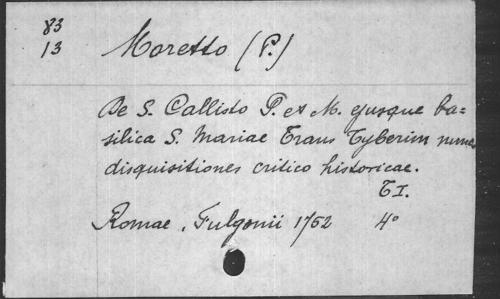 83
13
Moretto (P.)
De S. Callisto P. et M. ejusque ba=
silica S. Mariae Trans Tyberim nunc
disquisitiones critico historicae.
T I.
Romae, Fulgonii 1752 4°